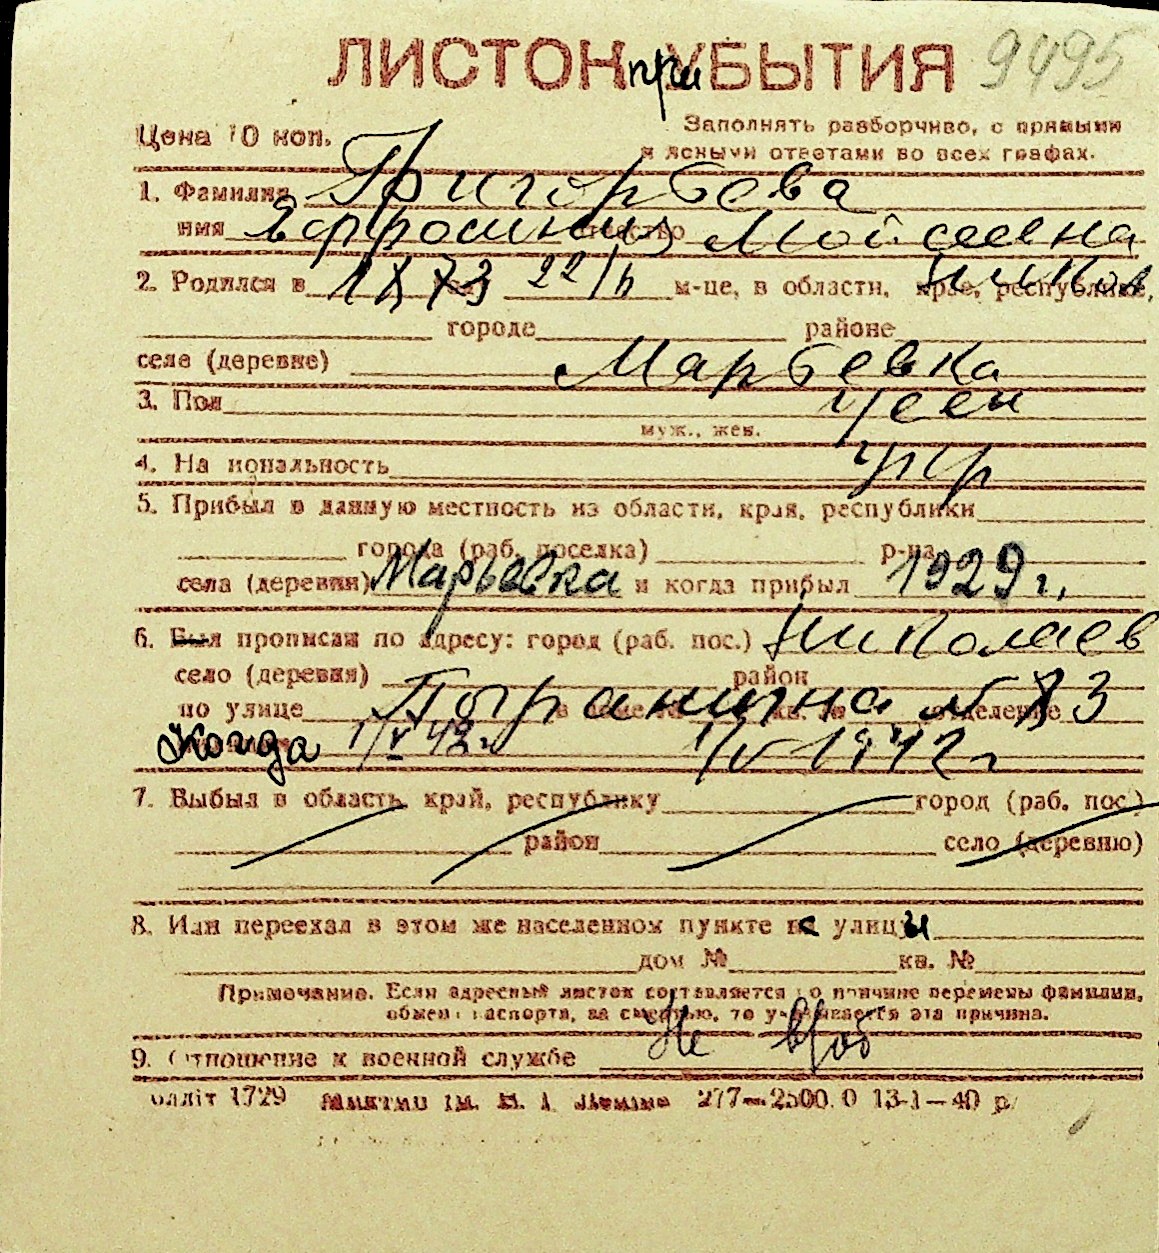 ЛИСТОК при УБЫТИЯ 9495
Цена 10 коп.
Заполнять разборчиво, с прямыми
и ясными ответами во всех графах.
1. Фамилия Григорьева
имя Ефросиния отчество Мойсеевна
2. Родился в 1873 22/ м-це, в области, крае, республике, Никол
городе районе
селе (деревне) Марьевка
3. Пол жен
муж., жен.
4. Национальность укр
5. Прибыл в данную местность из области, края, республики
города (раб. поселка) р-на
села (деревни) Марьевка и когда прибыл 1929 г.
6. Был прописан по адресу: город (раб. пос.) Николаев
село (деревня) район
по улице Погранична № 83 отделение
Когда 1/V 42 г. 1/V 1942 г
7. Выбыл в область, край, республику город (раб. пос.)
район село (деревню)
8. Или переехал в этом же населенном пункте с улицы
дом № кв. №
Примечание. Если адресный листок составляется по причине перемены фамилии,
обмена паспорта, за смертью, то указывается эта причина.
9. Отношение к военной службе Не в/об
олліт 1729 ім. В. І. Леніна 277—2500.0 13-1—40 р.